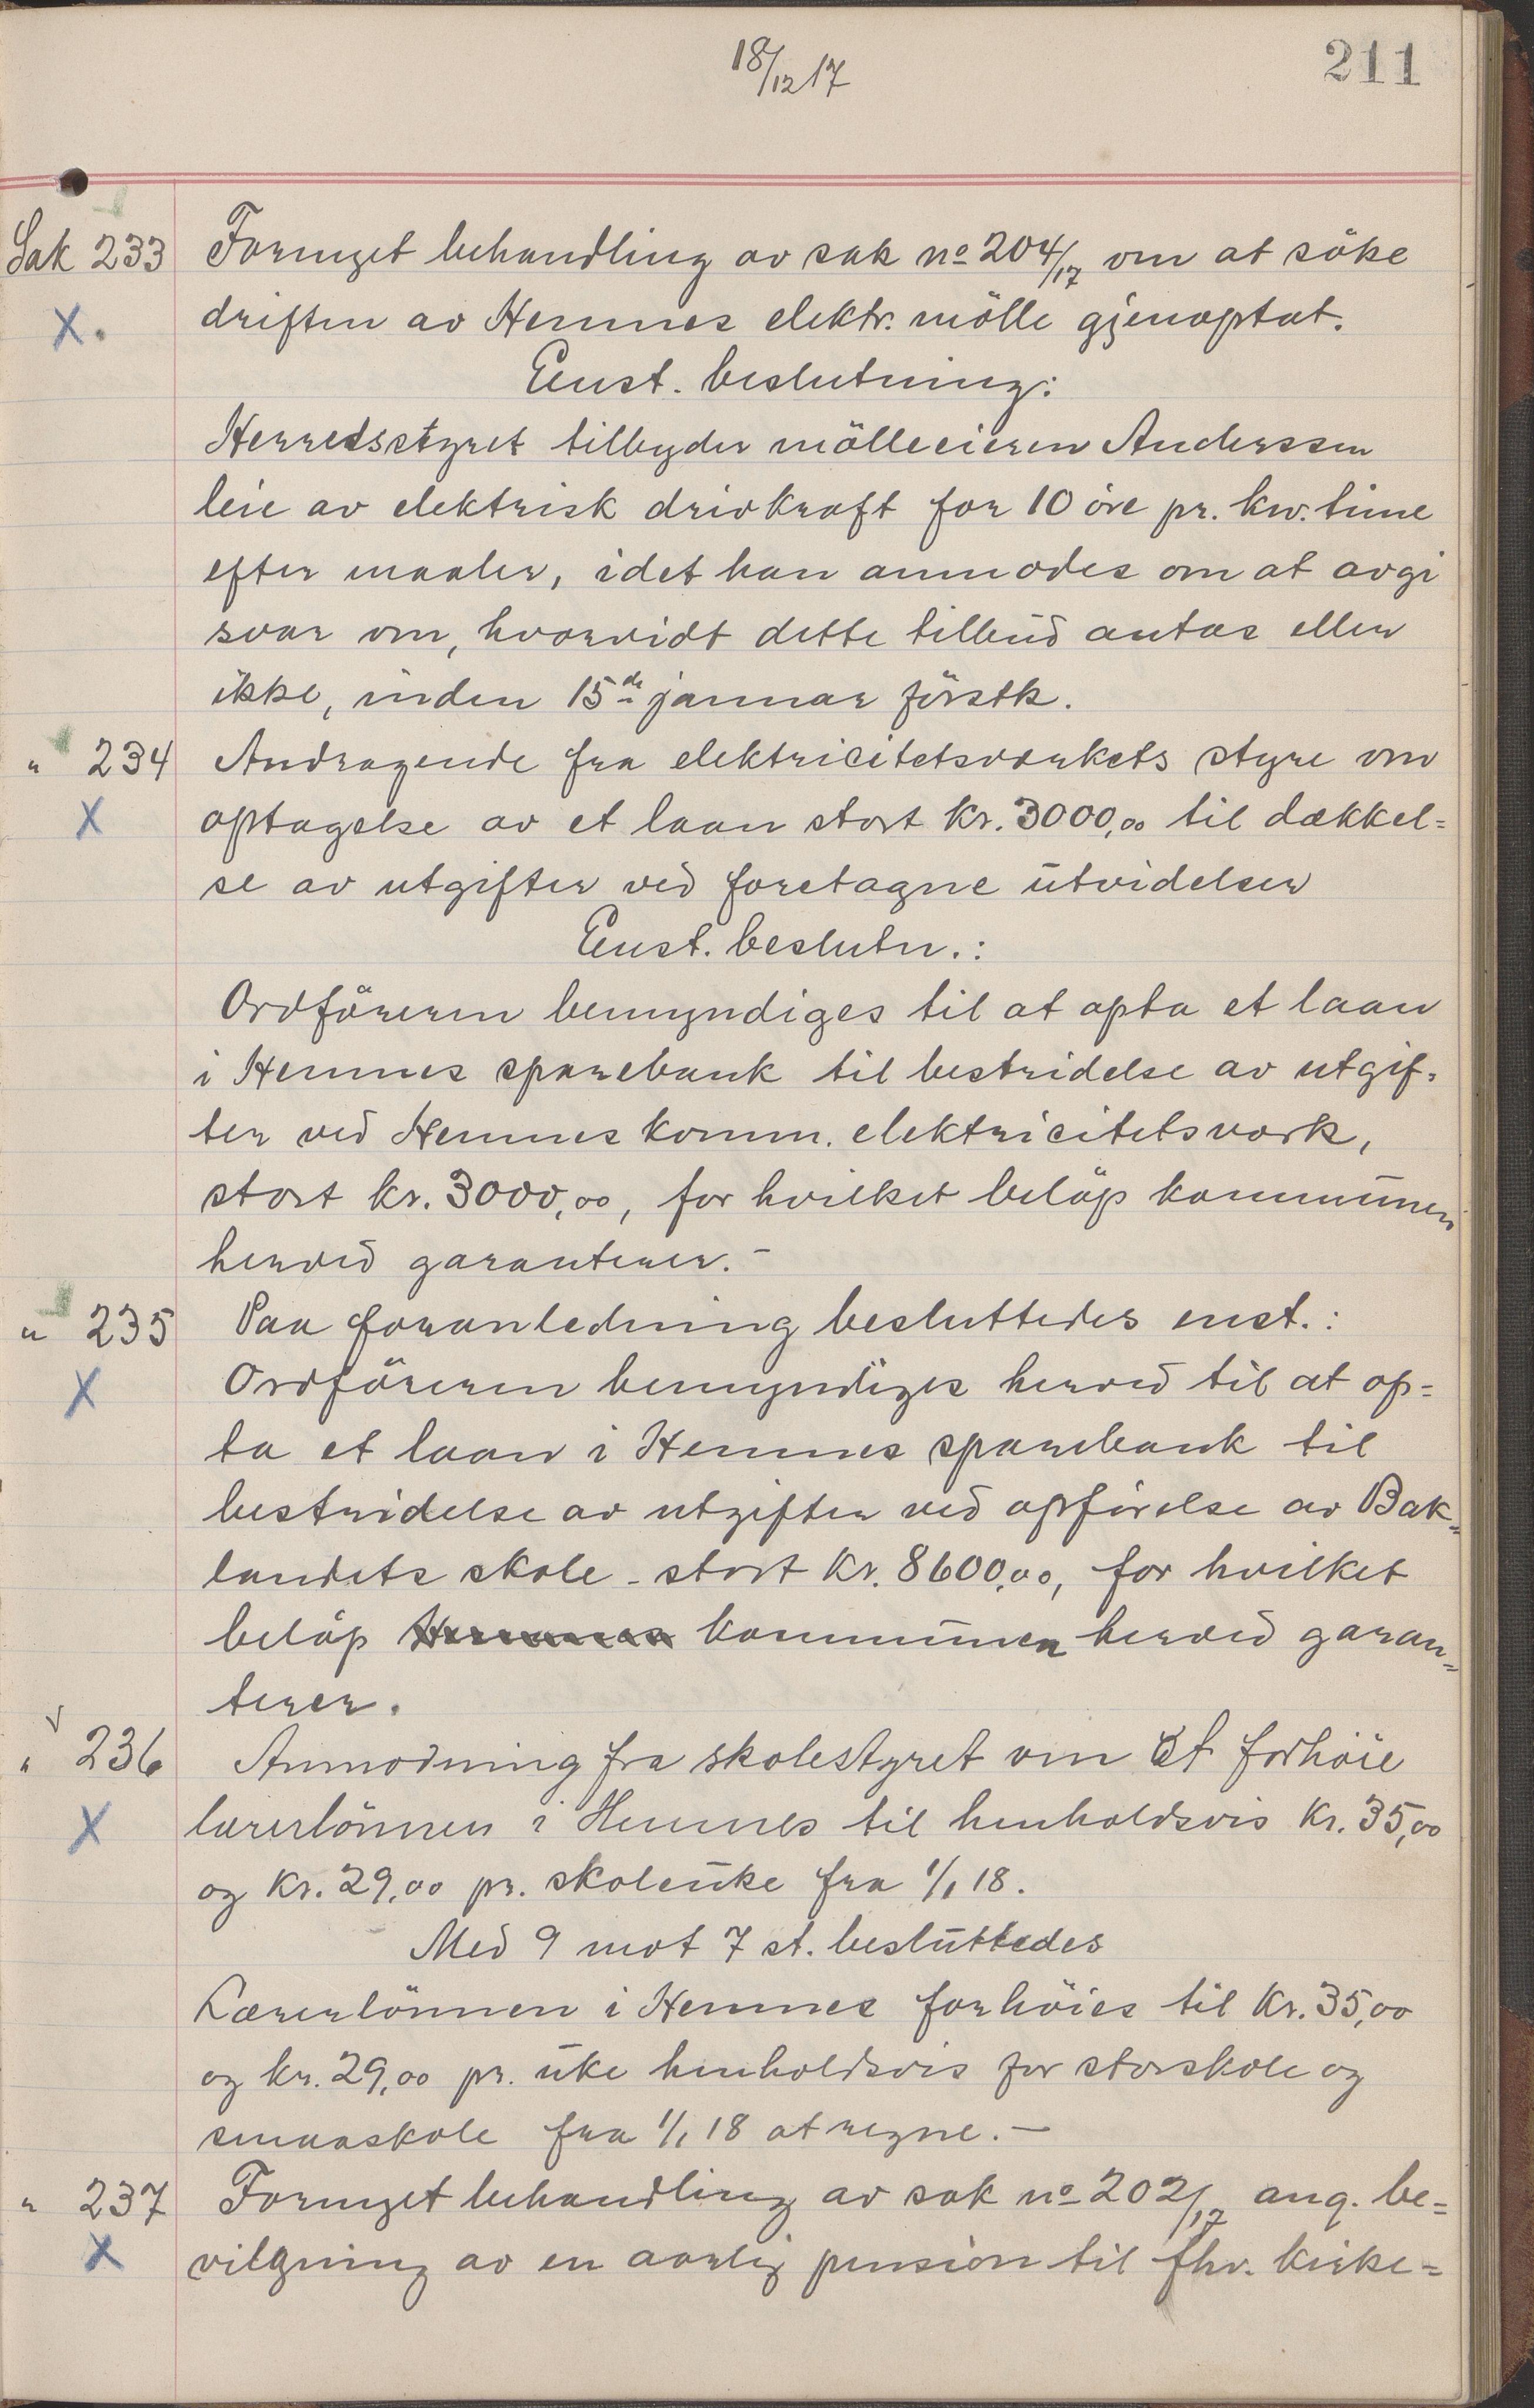 18/12 17
211
Sak 233 Fornyet behandling av sak no 204/17 om at söke
X. driften av Hemnes elektr. mölle gjenoptat.
Enst. beslutning:
Herredsstyret tilbyder mölleeieren Anderssen
leie av elektrisk drivkraft for 10 öre pr. kw. time
efter maaler, idet han anmodes om at avgi
svar om, hvorvidt dette tilbud antas eller
ikke, inden 15de januar förstk.
" 234 Andragende fra elektricitetsverkets styre om
X optagelse av et laan stort kr. 3000,00 til dækkel=
se av utgifter ved foretagne utvidelser
Enst. beslutn.:
Ordföreren bemyndiges til at opta et laan
i Hemnes sparebank til bestridelse av utgif=
ter ved Hemnes komm. elektricitetsverk,
stort kr. 3000,00, for hvilket belöp kommunen
herved garanterer. -
" 235 Paa foranledning besluttedes enst.:
X Ordföreren bemyndiges herved til at op=
ta et laan i Hemnes sparebank til
bestridelse av utgifter ved opförelse av Bak=
landets skole - stort kr. 8600,00, for hvilket
belöp Hemnes kommunen herved garan=
terer.
" 236 Anmodning fra skolestyret om at forhöie
X lærerlönnen i Hemnes til henholdsvis kr. 35,00
og kr. 29,00 pr. skoleuke fra 1/1 18.
Med 9 mot 7 st. besluttedes
Lærerlönnen i Hemnes forhöies til kr. 35,00
og kr. 29,00 pr. uke henholdsvis for storskole og
smaaskole fra 1/1 18 at regne. -
" 237 Fornyet behandling av sak no 202/17 ang. be=
X vilgning av en aarlig pension til fhv. kirke=